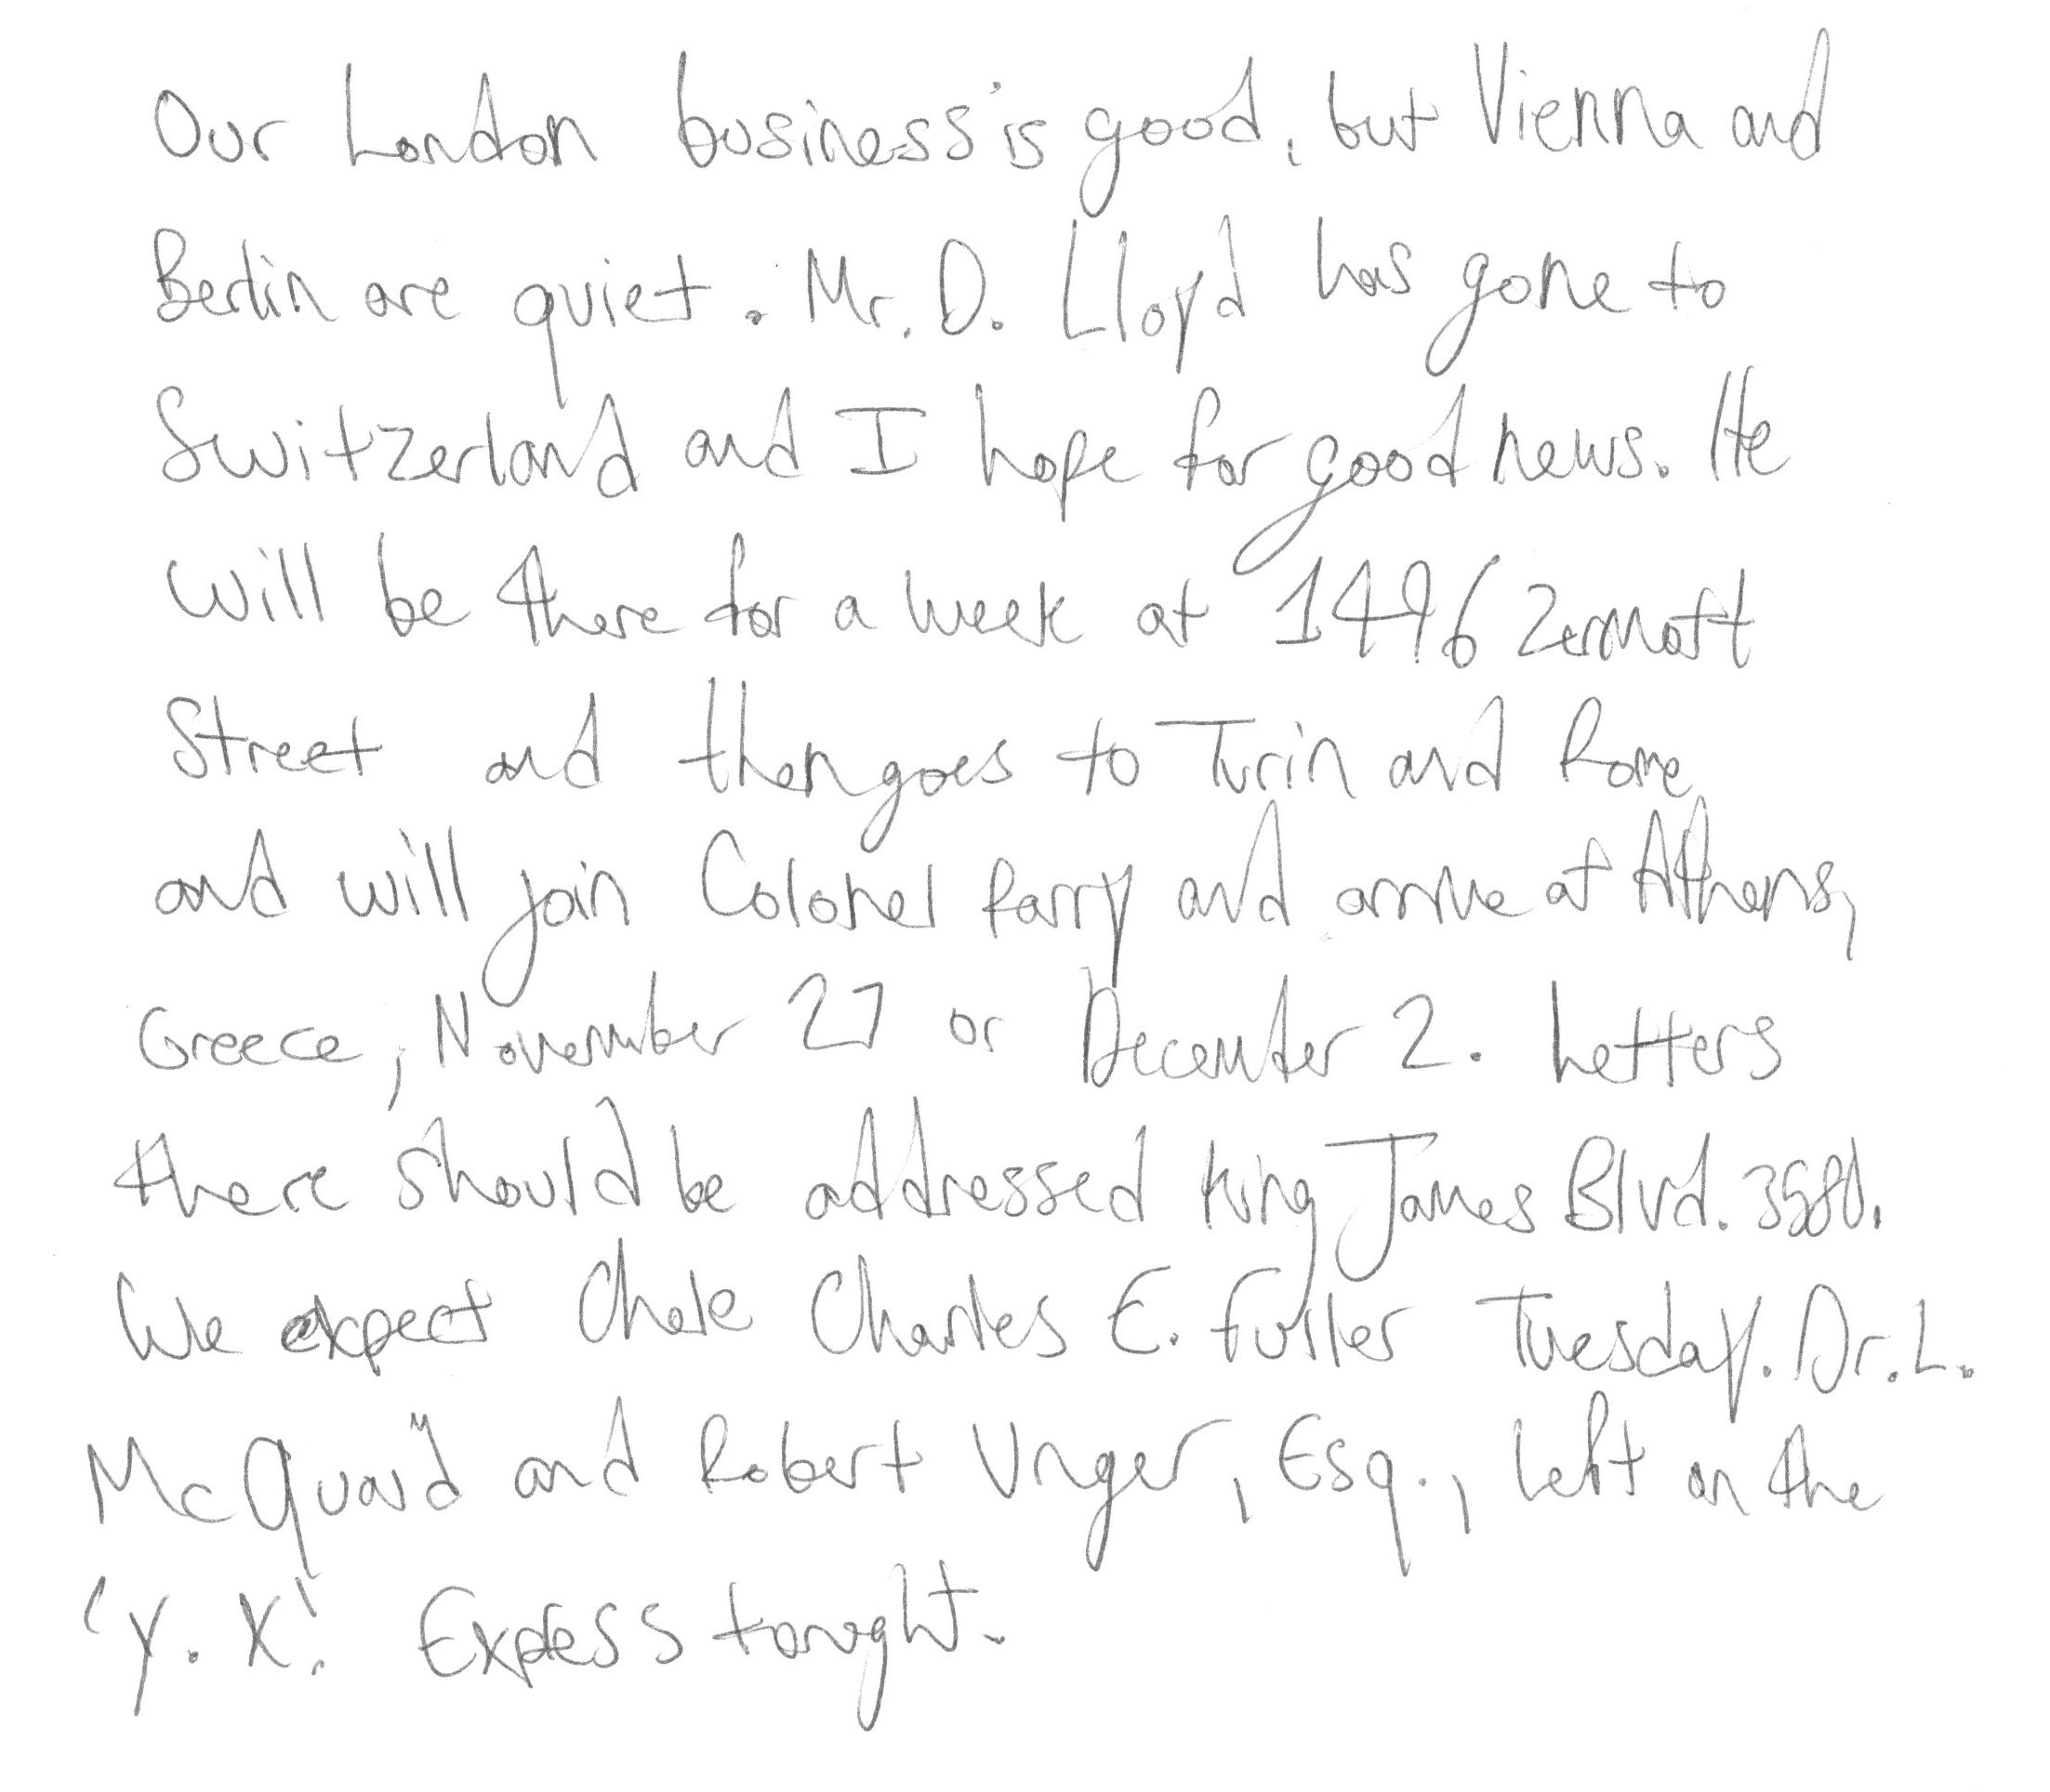 Our London business is good, but Vienna and
Berlin are quiet. Mr. D. Lloyd has gone to
Switzerland and I hope for good news. He
will be there for a week at 1496 Zermott
Street and then goes to Turin and Rome
and will join Colonel Parry and arrive at Athens,
Greece, November 27 or December 2. Letters
there should be addressed King James Blvd. 3580.
We expect Chale Charles E. Fuller Tuesday. Dr. L.
McQuaid and Robert Unger, Esq., left on the
'Y. X.' Express tonight.